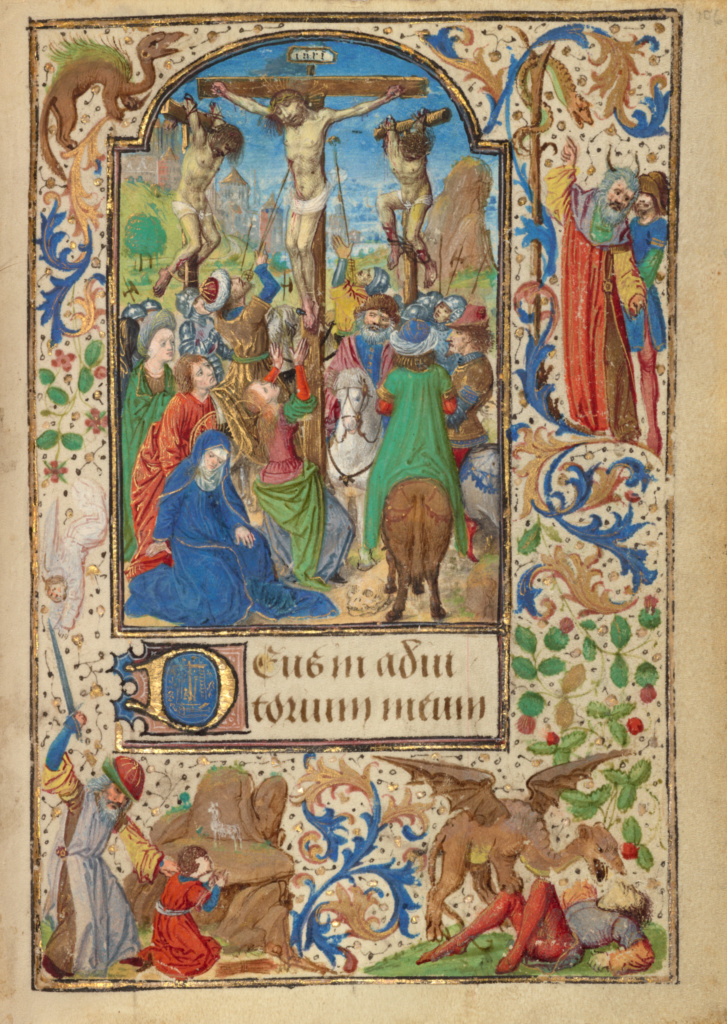 inri
Deus in adiu
torium meum